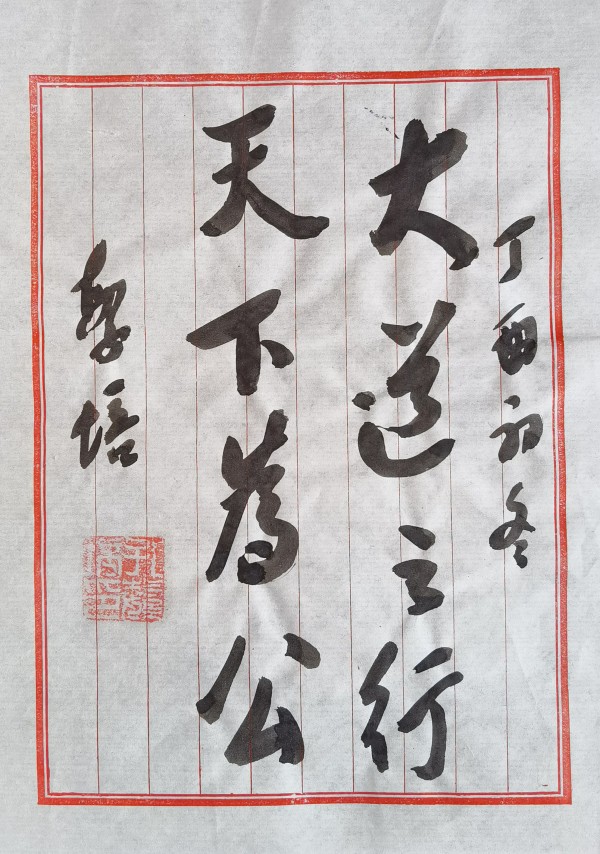 丁酉初冬
大道之行
天下為公
培